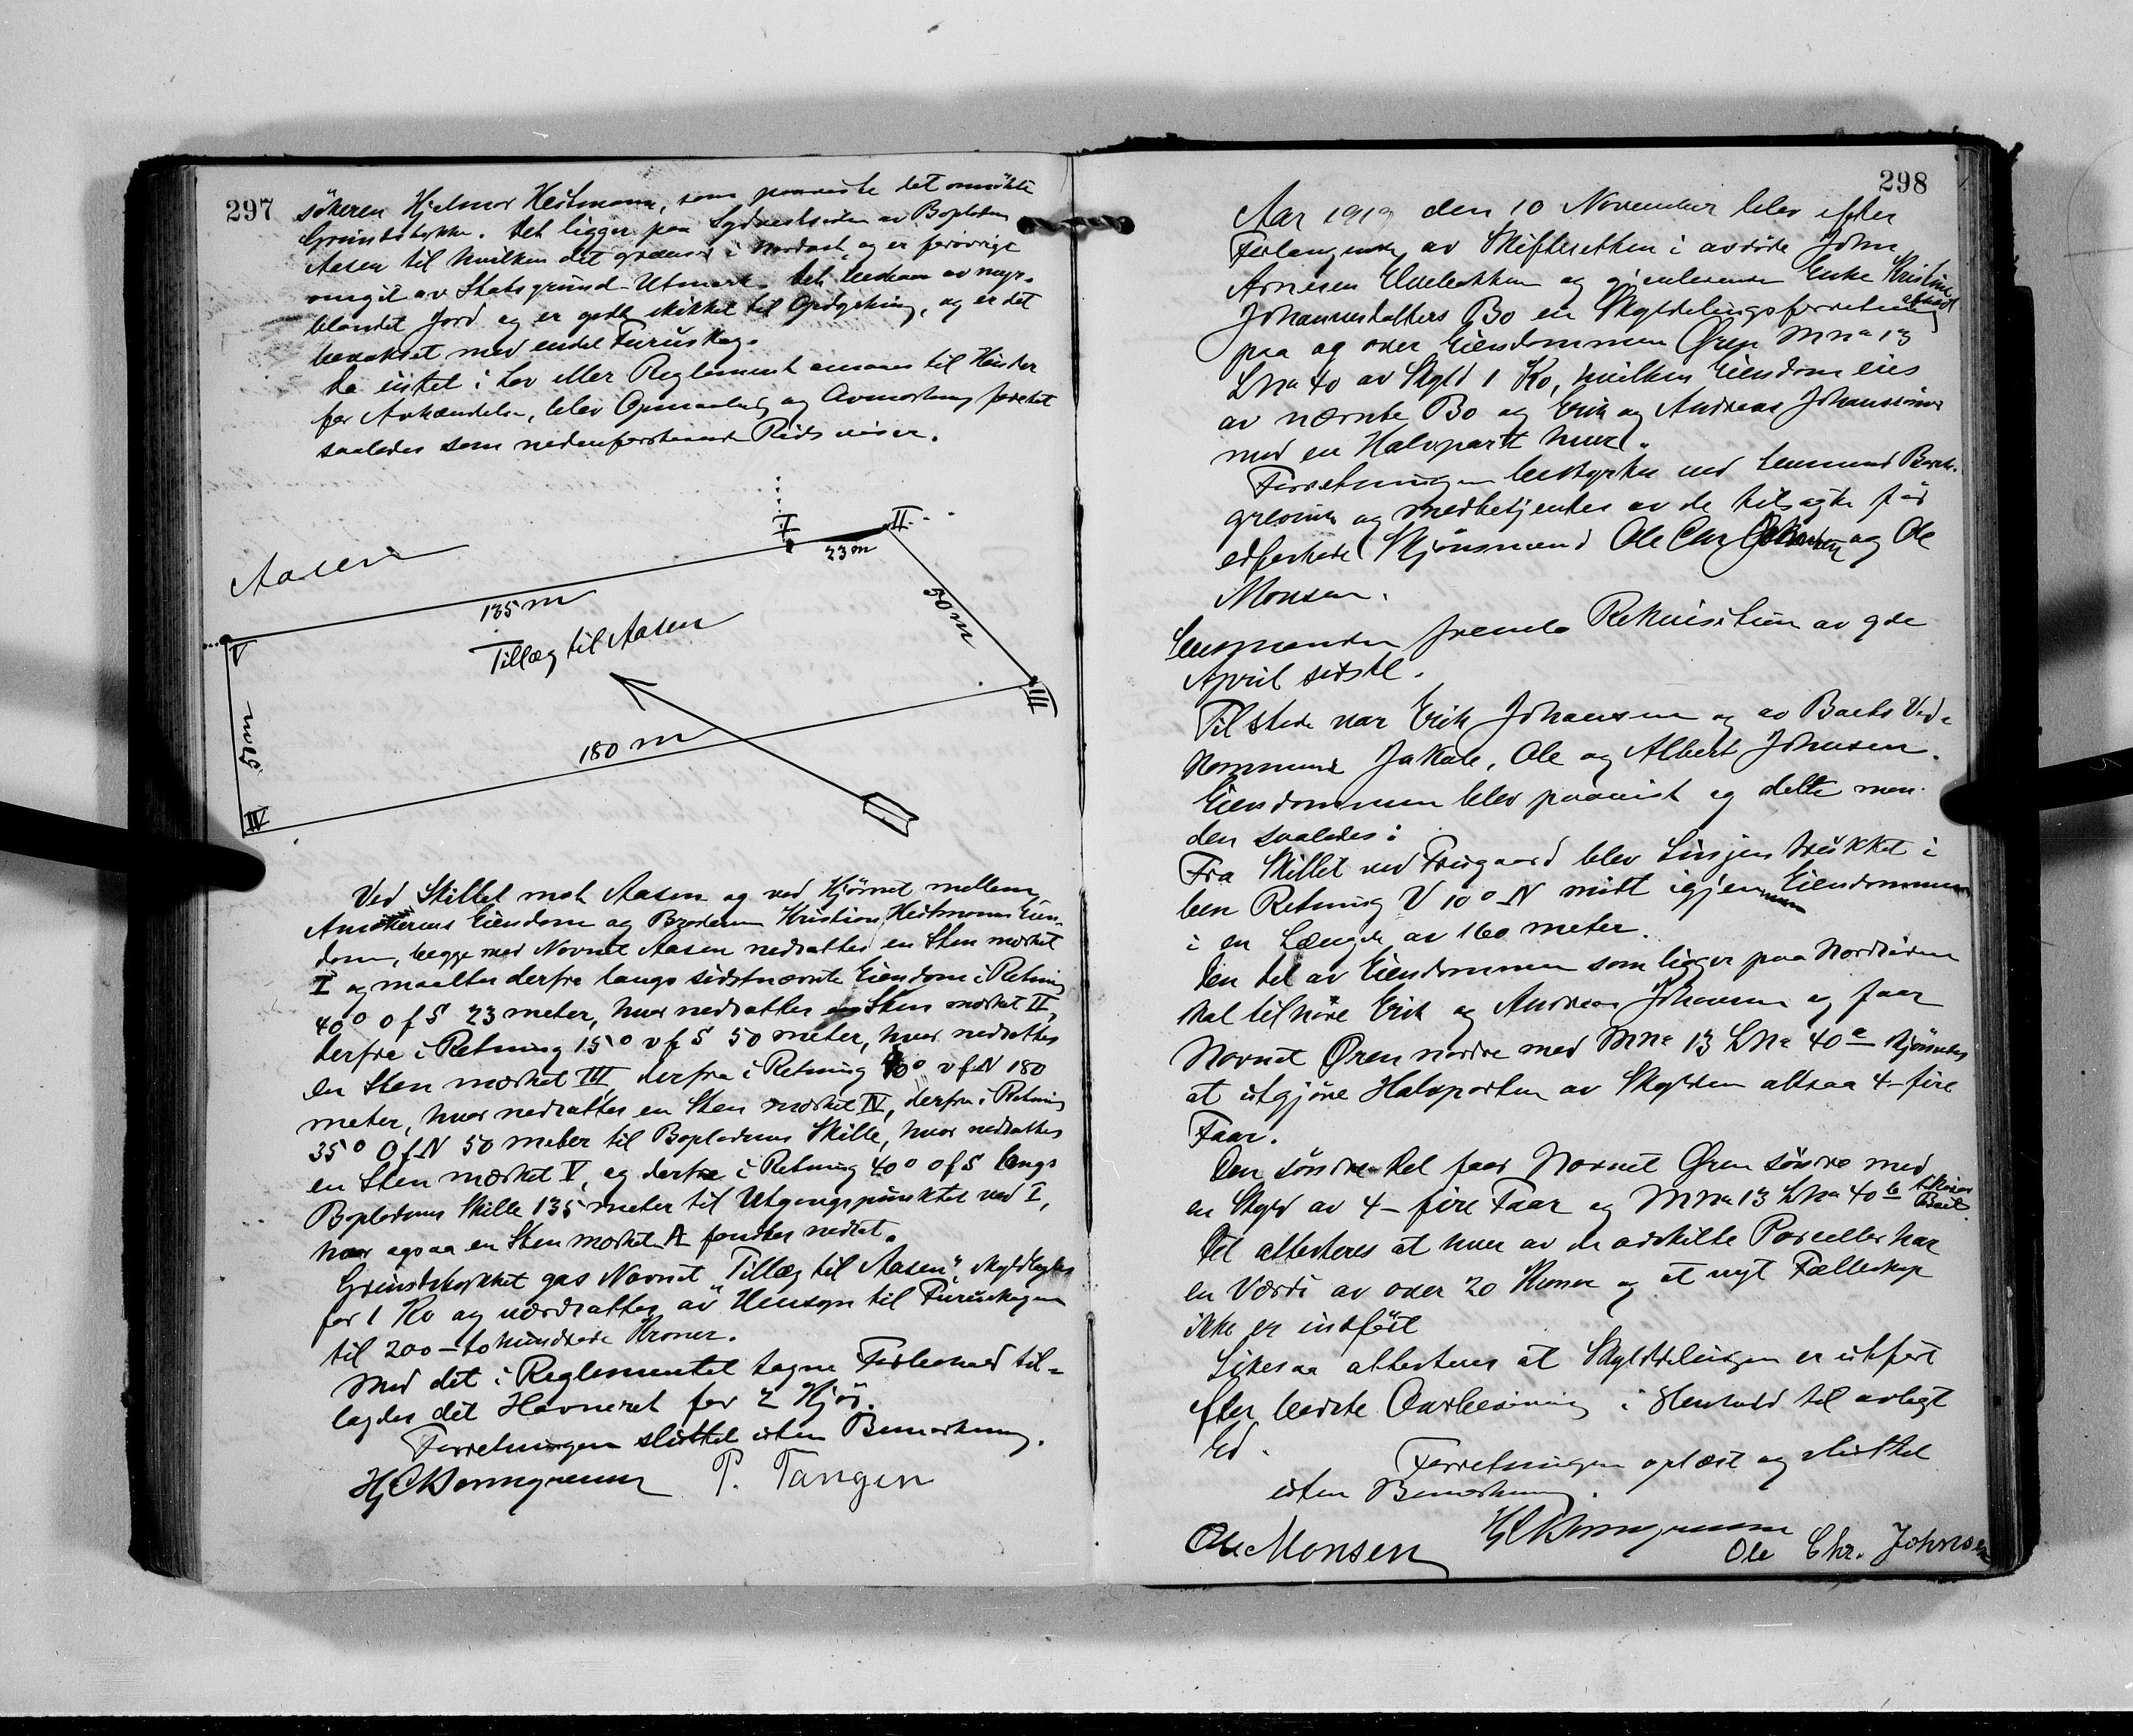 297
søkeren Hjelmar Heitmann, som paaviste det ansøkte
Grundstykke. Det ligger paa Sydvestsiden av Bopladsen
Aasen til hvilken det grænser i Nordost, og er forøvrigt
omgit av Statsgrund-Utmark. Det bestaar av myr-
blandet Jord og er godt skikket til Opdyrkning, og er det
bevokset med endel Furuskog.
Da intet i Lov eller Reglement ansaaes til Hinder
for Avhændelse, blev Opmaaling og Avmerkning foretat
saaledes som nedenforstaaende Rids viser.
Aasen
I
II
23 m
135 m
50 m
Tillæg til Aasen
V
III
50 m
180 m
IV
Ved Skillet mot Aasen og ved Hjørnet mellem
Ansøkerens Eiendom og Broderen Kristian Heitmanns Eien-
dom, begge med Navnet Aasen nedsattes en Sten merket
I og maaltes derfra langs sidstnævnte Eiendom i Retning
40° O f S 23 meter, hvor nedsattes en Sten merket II,
derfra i Retning 15° v f S 50 meter, hvor nedsattes
en Sten merket III, derfra i Retning 40° v f N 180
meter, hvor nedsattes en Sten merket IV, derfra i Retning
35° O f N 50 meter til Bopladsens Skille, hvor nedsattes
en Sten merket V, og derfra i Retning 40° O f S langs
Bopladsens Skille 135 meter til Utgangspunktet ved I,
hvor ogsaa en Sten merket A fandtes nedsat.
Grundstykket gas Navnet "Tillæg til Aasen", skyldlagdes
for 1 Ko og værdsattes av Hensyn til Furuskogen
til 200 – to hundrede Kroner.
Med det i Reglementet tagne Forbehold til-
lagdes det Havneret for 2 Kjør.
Forretningen sluttet uten Bemerkning.
P. Tangen
298
Aar 1919 den 10 November blev efter
Forlangende av Skifteretten i avdøde John
Arnesen og gjenlevende Enke Kristine
Johannesdatters Bo en Skylddelingsforretning avholdt
paa og over Eiendommen Øren M No 13
L No 40 av Skyld 1 Ko, hvilken Eiendom eies
av nævnte Bo og Erik og Andreas Johansen
med en Halvpart hver.
Forretningen bestyrtes ved Lensmand
og medbetjentes av de tilsagte før
edfæstede Skjønsmænd Ole Chr Johnsen og Ole
Monsen.
Lensmanden fremla Rekvisition av 9de
April sidstl.
Tilstede var Erik Johansen og av Boets Ved-
kommende Jakob, Ole og Albert Johnsen.
Eiendommen blev paavist og delte man
den saaledes:
Fra Skillet ved Frisgaard blev Linjen trukket i
en Retning V 10° N midt igjennem Eiendommen
i en Længde av 160 meter.
Den del av Eiendommen som ligger paa Nordsiden
skal tilhøre Erik og Andreas Johansen og faar
Navnet Øren nordre med M No 13 L No 40 a skjønnedes
at utgjøre Halvparten av Skylden altsaa 4 – fire
Faar.
Den søndre del faar Navnet Øren søndre med
en Skyld av 4 – fire Faar og M No 13 L No 40 b tilhører Boet.
Det attesteres at hver av de adskilte Parceller har
en Værdi av over 20 Kroner og at nyt Fælleskap
ikke er indført
Likesaa attesteres at Skylddelingen er utført
efter bedste Overbevisning i Henhold til avlagt
Ed.
Forretningen oplæst og sluttet
uten Bemerkning.
Ole Monsen
Ole Chr. Johnsen